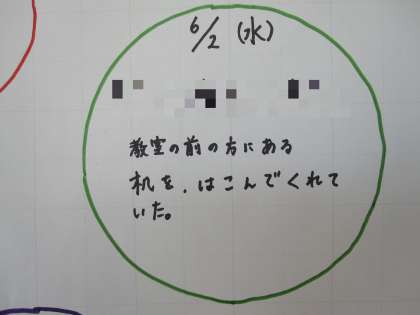 6/2 (水)
教室の前の方にある
机を、はこんでくれて
いた。